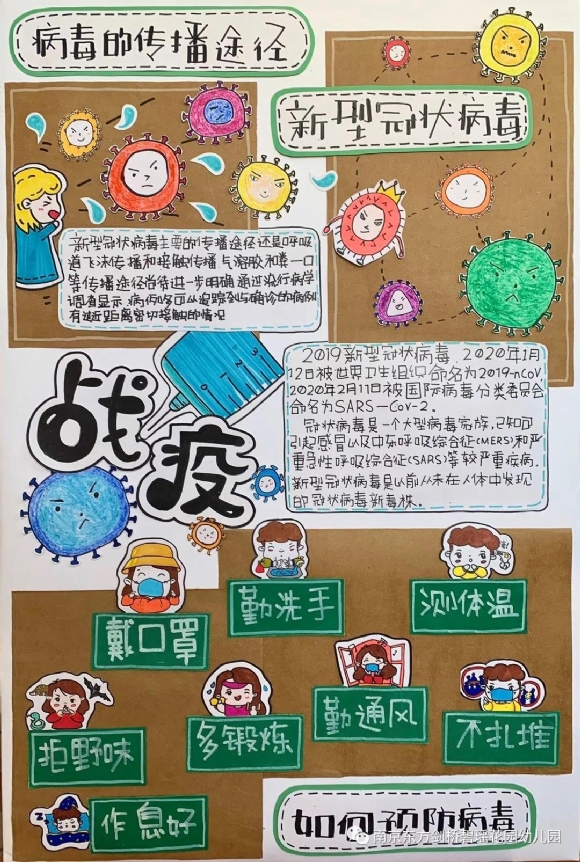 病毒的传播途径
新型冠状病毒
新型冠状病毒主要的传播途径还是呼吸
道飞沫传播和接触传播气溶胶和粪一口
等传播途径尚待进一步明确通过流行病学
调查显示病例多可以追踪到与确诊的病例
有过近距离密切接触的情况
2019新型冠状病毒,2020年1月
12日被世界卫生组织命名为2019-nCoV
2020年2月11日被国际病毒分类委员会
命名为SARS-CoV-2.
冠状病毒是一个大型病毒家族,已知可
引起感冒以及中东呼吸综合征(MERS)和严
重急性呼吸综合征(SARS)等较严重疾病.
新型冠状病毒是以前从未在人体中发现
的冠状病毒新毒株.
战疫
戴口罩
勤洗手
测体温
拒野味
多锻炼
勤通风
不扎堆
作息好
如何预防病毒
南京东方剑桥碧瑶花园幼儿园